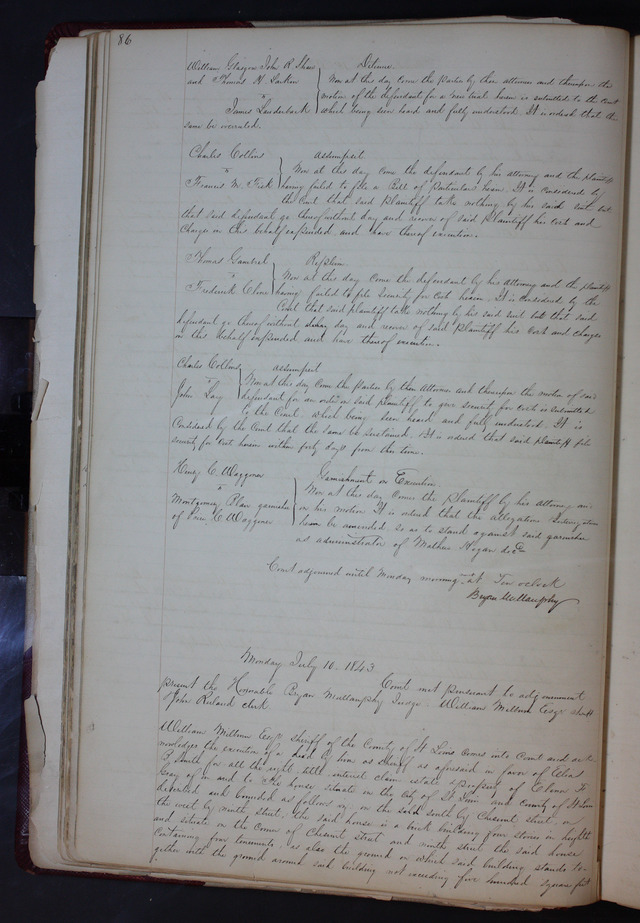 86
William Glasgow John R Shaw Detinue
and Thomas H Larkin Now at this day come the parties by their attornies and thereupon the
vs motion of the defendant for a new trial herein is submitted to the Court
James Lauderback which being seen heard and fully understood. It is ordered that the
same be overruled.
Charles Collins assumpsit
vs Now at this day come the defendant by his attorney and the plaintiff
Francis W. Fisk having failed to file a Bill of Particulars herein. It is considered by
the Court that said Plaintiff take nothing by his said suit but
that said defendant go thereof without day and recover of said Plaintiff his costs and
charges in this behalf expended and have thereof execution.
Thomas Gambrel Replevin
vs Now at this day Come the defendant by his Attorney and the plaintiff
Frederick Cline having failed to file Security for Costs herein. It is considered by the
Court that said plaintiff take nothing by his said suit but that said
defendant go thereof without day and recover of said Plaintiff his Costs and charges
in this behalf expended and have thereof execution.
Charles Collins assumpsit
vs Now at this day Come the parties by their Attornies and thereupon the motion of said
John Lay defendant for an order on said plaintiff to give security for costs is submitted
to the Court. which being seen heard and fully understood. It is
Considered by the Court that the same be sustained. It is ordered that said plaintiff file
security for Cost herein within forty days from this time.
Henry C. Waggoner Garnishment on Execution.
vs Now at this day Comes the plaintiff by his attorney and
Montgomery Blair garnishee on his motion It is ordered that the allegations Interrogatories
of C Waggoner herein be amended so as to stand against said garnishee
as administrator of Mathew Hogan decd
Court adjourned until Monday morning at Ten oclock
Bryan Mullanphy
Monday July 10. 1843
Court met pursuant to adjournment
present the Honorable Bryan Mullanphy Judge. William Milburn Esqr sheriff
& John Ruland clerk
William Milburn Esqr Sheriff of the County of St Louis comes into Court and ack
nowledges the execution of a deed by him as Sheriff as aforesaid in favor of Elias
B Smith for all the right title interest claim estate & property of Ebenr T
Gray of in and to the house situate in the City of St Louis and County of St Louis
described and bounded as follows viz: on the south by Chesnut street, on
the west by ninth street. The said house is a brick building four stories in height
and situate on the corner of Chesnut street and ninth street the said house
containing four tenements, as also the ground on which said building stands to-
gether with the ground around said building not exceeding five hundred square feet